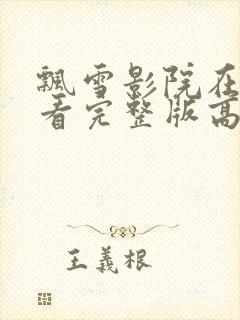 飘雪影院在
看完整版高
王義根